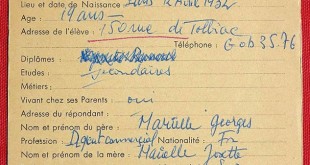 Lieu et date de Naissance : Paris 12 Avril 1932
Age : 19 ans
Adresse de l'élève : 150 rue de Tolbiac
Téléphone : Gob 35.76
Diplômes :
Etudes : secondaires
Métiers :
Vivant chez ses Parents : oui
Adresse du répondant :
Nom et prénom du père : Martelle Georges
Profession : Agent commercial Nationalité : Fr
Nom et prénom de la mère : Josette